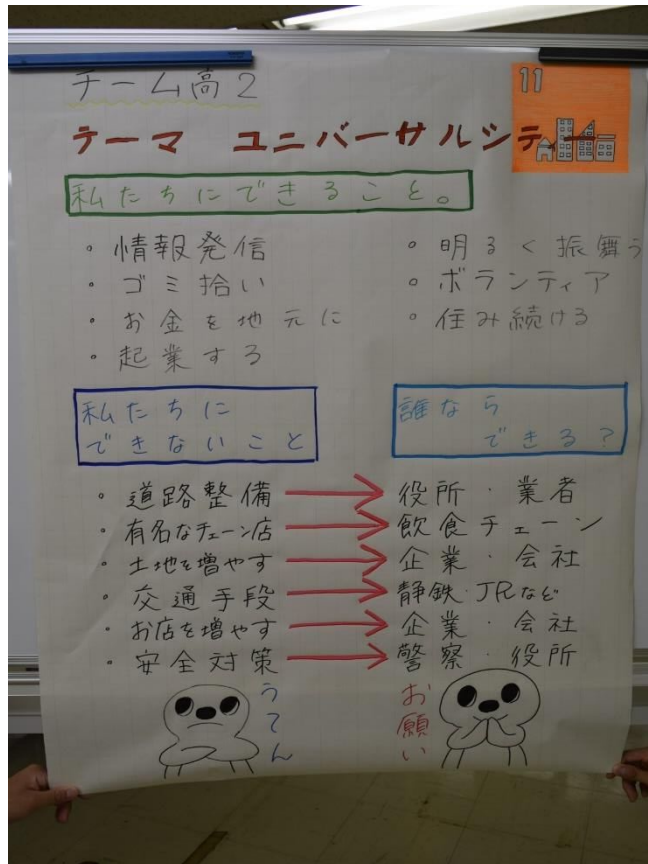 チーム高2
11
テーマ ユニバーサルシティー
私たちにできること。
・情報発信
・ゴミ拾い
・お金を地元に
・起業する
・明るく振舞う
・ボランティア
・住み続ける
私たちに
できないこと
誰なら
できる?
・道路整備 → 役所・業者
・有名なチェーン店 → 飲食チェーン
・土地を増やす → 企業・会社
・交通手段 → 静鉄・JRなど
・お店を増やす → 企業・会社
・安全対策 → 警察・役所
うてん
お願い